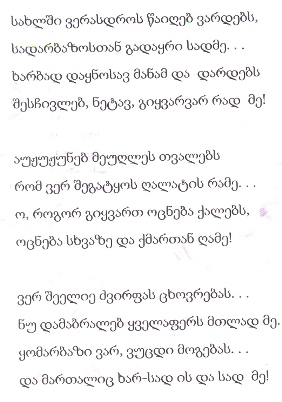 სახლში ვერასდროს წაიღებ ვარდებს,
სადარბაზოსთან გადაყრი სადმე. . .
ხარბად დაყნოსავ მანამ და დარდებს
შესჩივლებ, ნეტავ, გიყვარვარ რად მე!
აუჟუჟუნებ მეუღლეს თვალებს
რომ ვერ შეგატყოს ღალატის რამე. . .
ო, როგორ გიყვართ ოცნება ქალებს,
ოცნება სხვაზე და ქმართან ღამე!
ვერ შეელიე ძვირფას ცხოვრებას. . .
ნუ დამაბრალებ ყველაფერს მთლად მე.
ყომარბაზი ვარ, ვუცდი მოგებას. . .
და მართალიც ხარ-სად ის და სად მე!